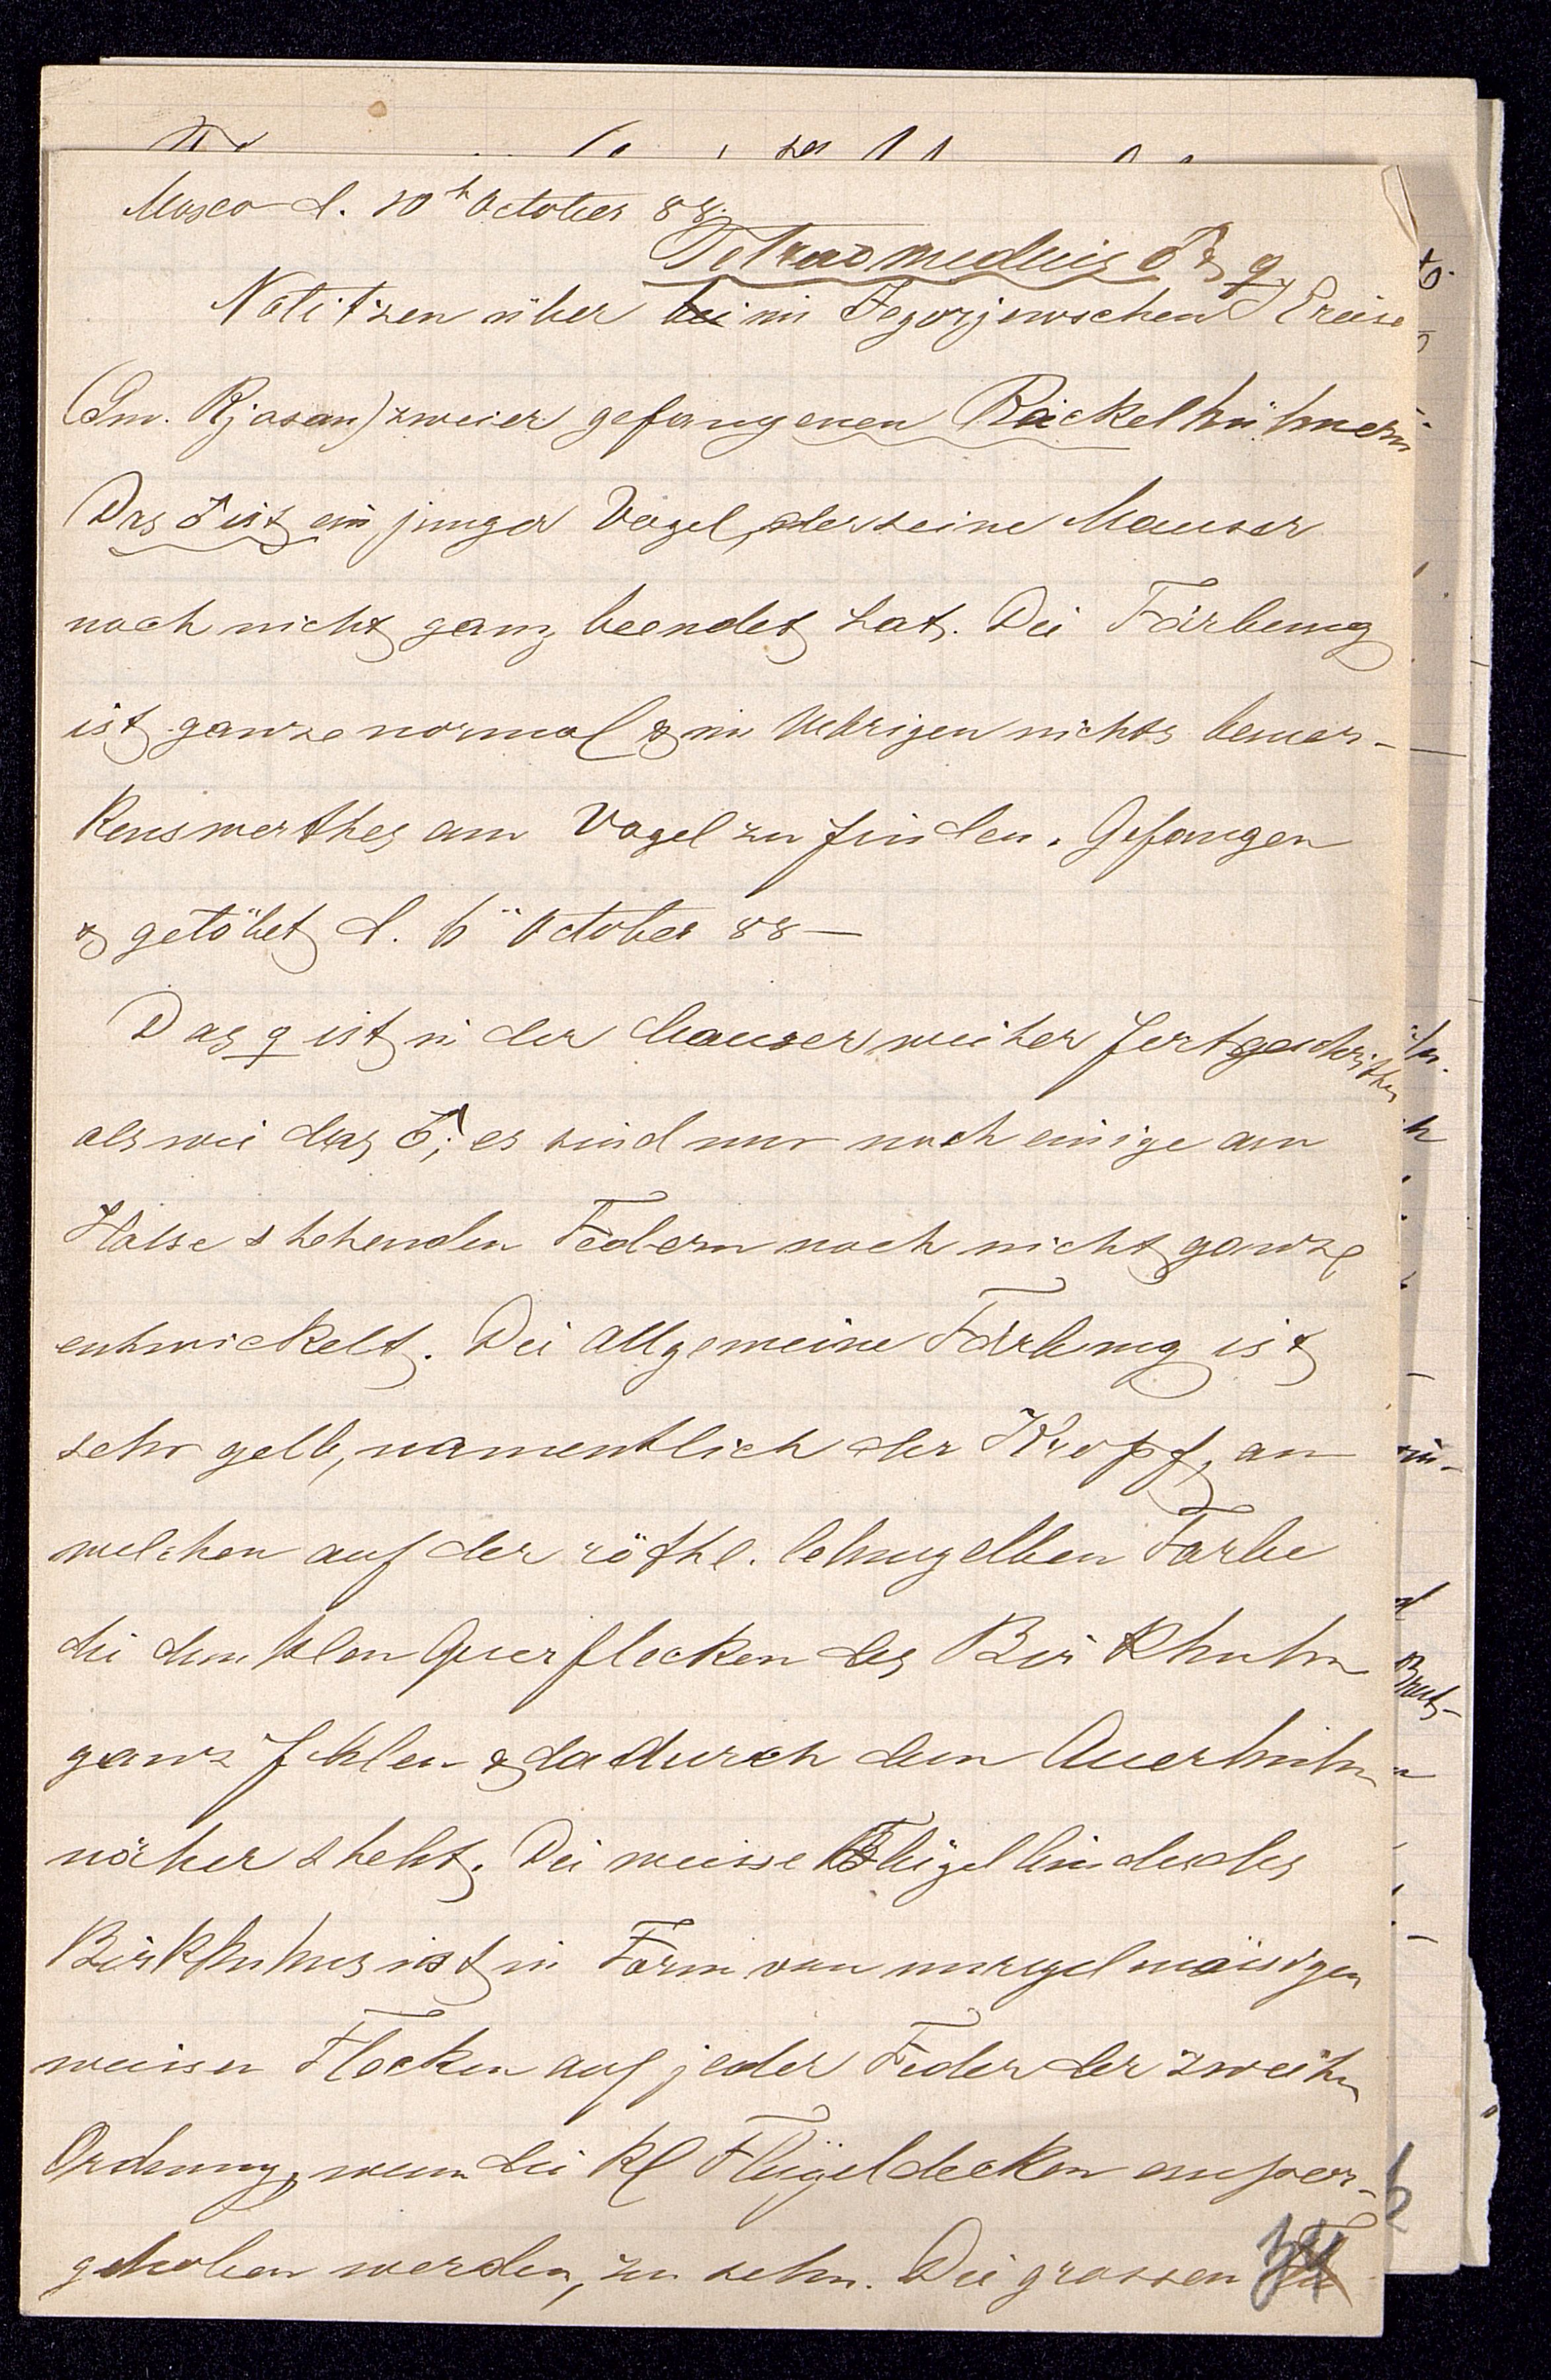 Mosco d. 10t October 88.
Tetrao medius ♂ & ♀
Notitzen über bei im Jegorjewschen Kreise
(Gm. Rjasan) zweier gefangenen Rackelhühnern
Das ♂ ist ein junger Vogel, der seine Mauser
noch nicht ganz beendet hat. Die Färbung
ist ganze normal & im Uebrigen nichts bemer-
kenswerthes am Vogel zu finden. Gefangen
& getötet d. 6" October 88 —
Das ♀ ist in der Mauser weiter fortgeschritten
als wie das ♂; es sind nur noch einige am
Halse stehenden Federn noch nicht ganze
entwickelt. Die allgemeine Färbung ist
sehr gelb, namentlich der Kropf, an
welchen auf der röthl. lehmgelben Farbe
die dunklen Querflecken des Birkhuhn
ganz fehlen & dadurch dem Auerhuhn
näher steht. Die weisse Flügelbinde des
Birkhuhns ist in Form von unregelmäisigen
weissen Flecken auf jeder Feder der zweiten
Ordnung, wenn die kl Flügeldecken empor-
gehoben werden, zu sehn. Die grossen
34